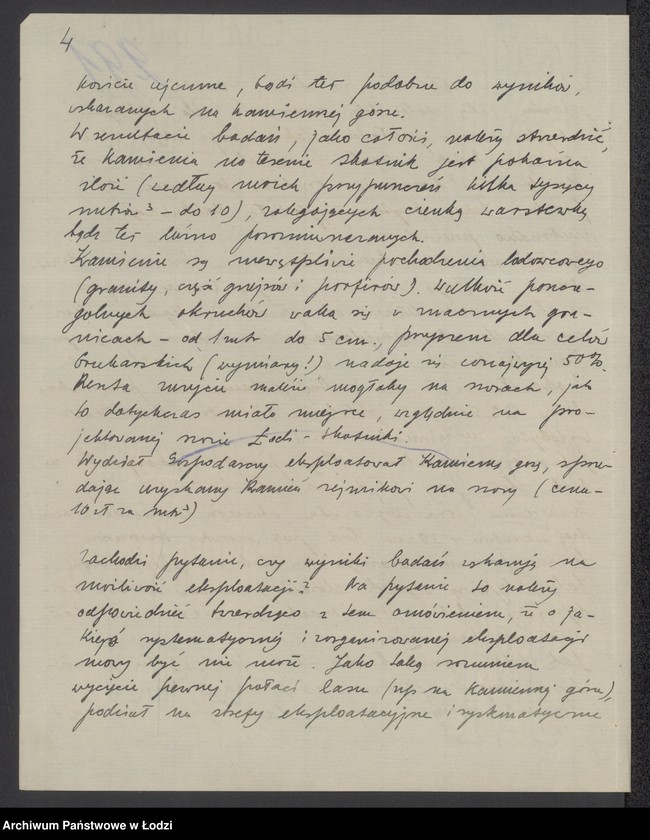 4
kowicie ujemne, bądź też podobne do wyników,
wskazanych na Kamiennej górze.
W rezultacie badań, jako całości, należy stwierdzić,
że Kamienia na terenie Skotnik jest pokaźna
ilość (według moich przypuszczeń kilka tysięcy
mtr ³ – do 10), zalegających cienką warstewką
bądź też luźno porozmieszczanych.
Kamienie są niewątpliwie pochodzenia lodowcowego
(granity, część gnejsów i porfirów). Wielkość poszcze-
gólnych okruchów waha się w znacznych gra-
nicach – od 1 mtr do 5 cm., przyczem dla celów
brukarskich (wymiary!) nadaje się conajwyżej 50%.
Reszta użycie znaleźć mogłaby na szosach, jak
to dotychczas miało miejsce, względnie na pro-
jektowanej szosie Łódź – Skotniki.
Wydział Gospodarczy eksploatował Kamienną górę, sprze-
dając uzyskany Kamień sejmikowi na szosy (cena –
10 zł za mtr³)
Zachodzi pytanie, czy wyniki badań wskazują na
możliwość eksploatacji? Na pytanie to należy
odpowiedzieć twierdząco z tem omówieniem, że o ja-
kiejś systematycznej i zorganizowanej eksploatacji
mowy być nie może. Jako taką rozumiem
wycięcie pewnej połaci lasu (np na Kamiennej górze),
podział na strefy eksploatacyjne i systematyczne
Archiwum Państwowe w Łodzi